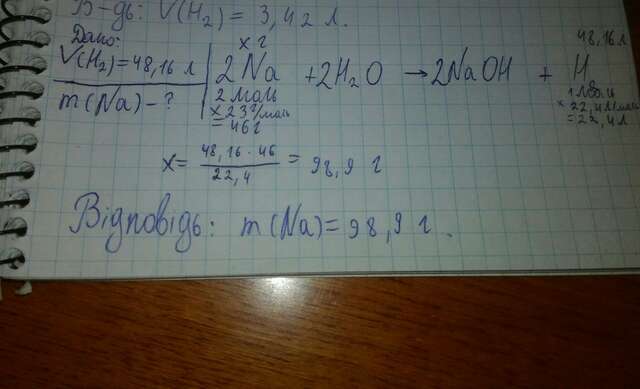 В-дь: V(H₂) = 3,42 л.
Дано:
V(H₂)=48,16 л
m(Na) - ?
x г 48,16 л
2Na + 2H₂O → 2NaOH + H
2 моль 1 моль
× 23 г/моль × 22,4 л/моль
= 46 г = 22,4 л
x = 48,16 · 46 / 22,4 = 98,9 г
Відповідь: m(Na) = 98,9 г.